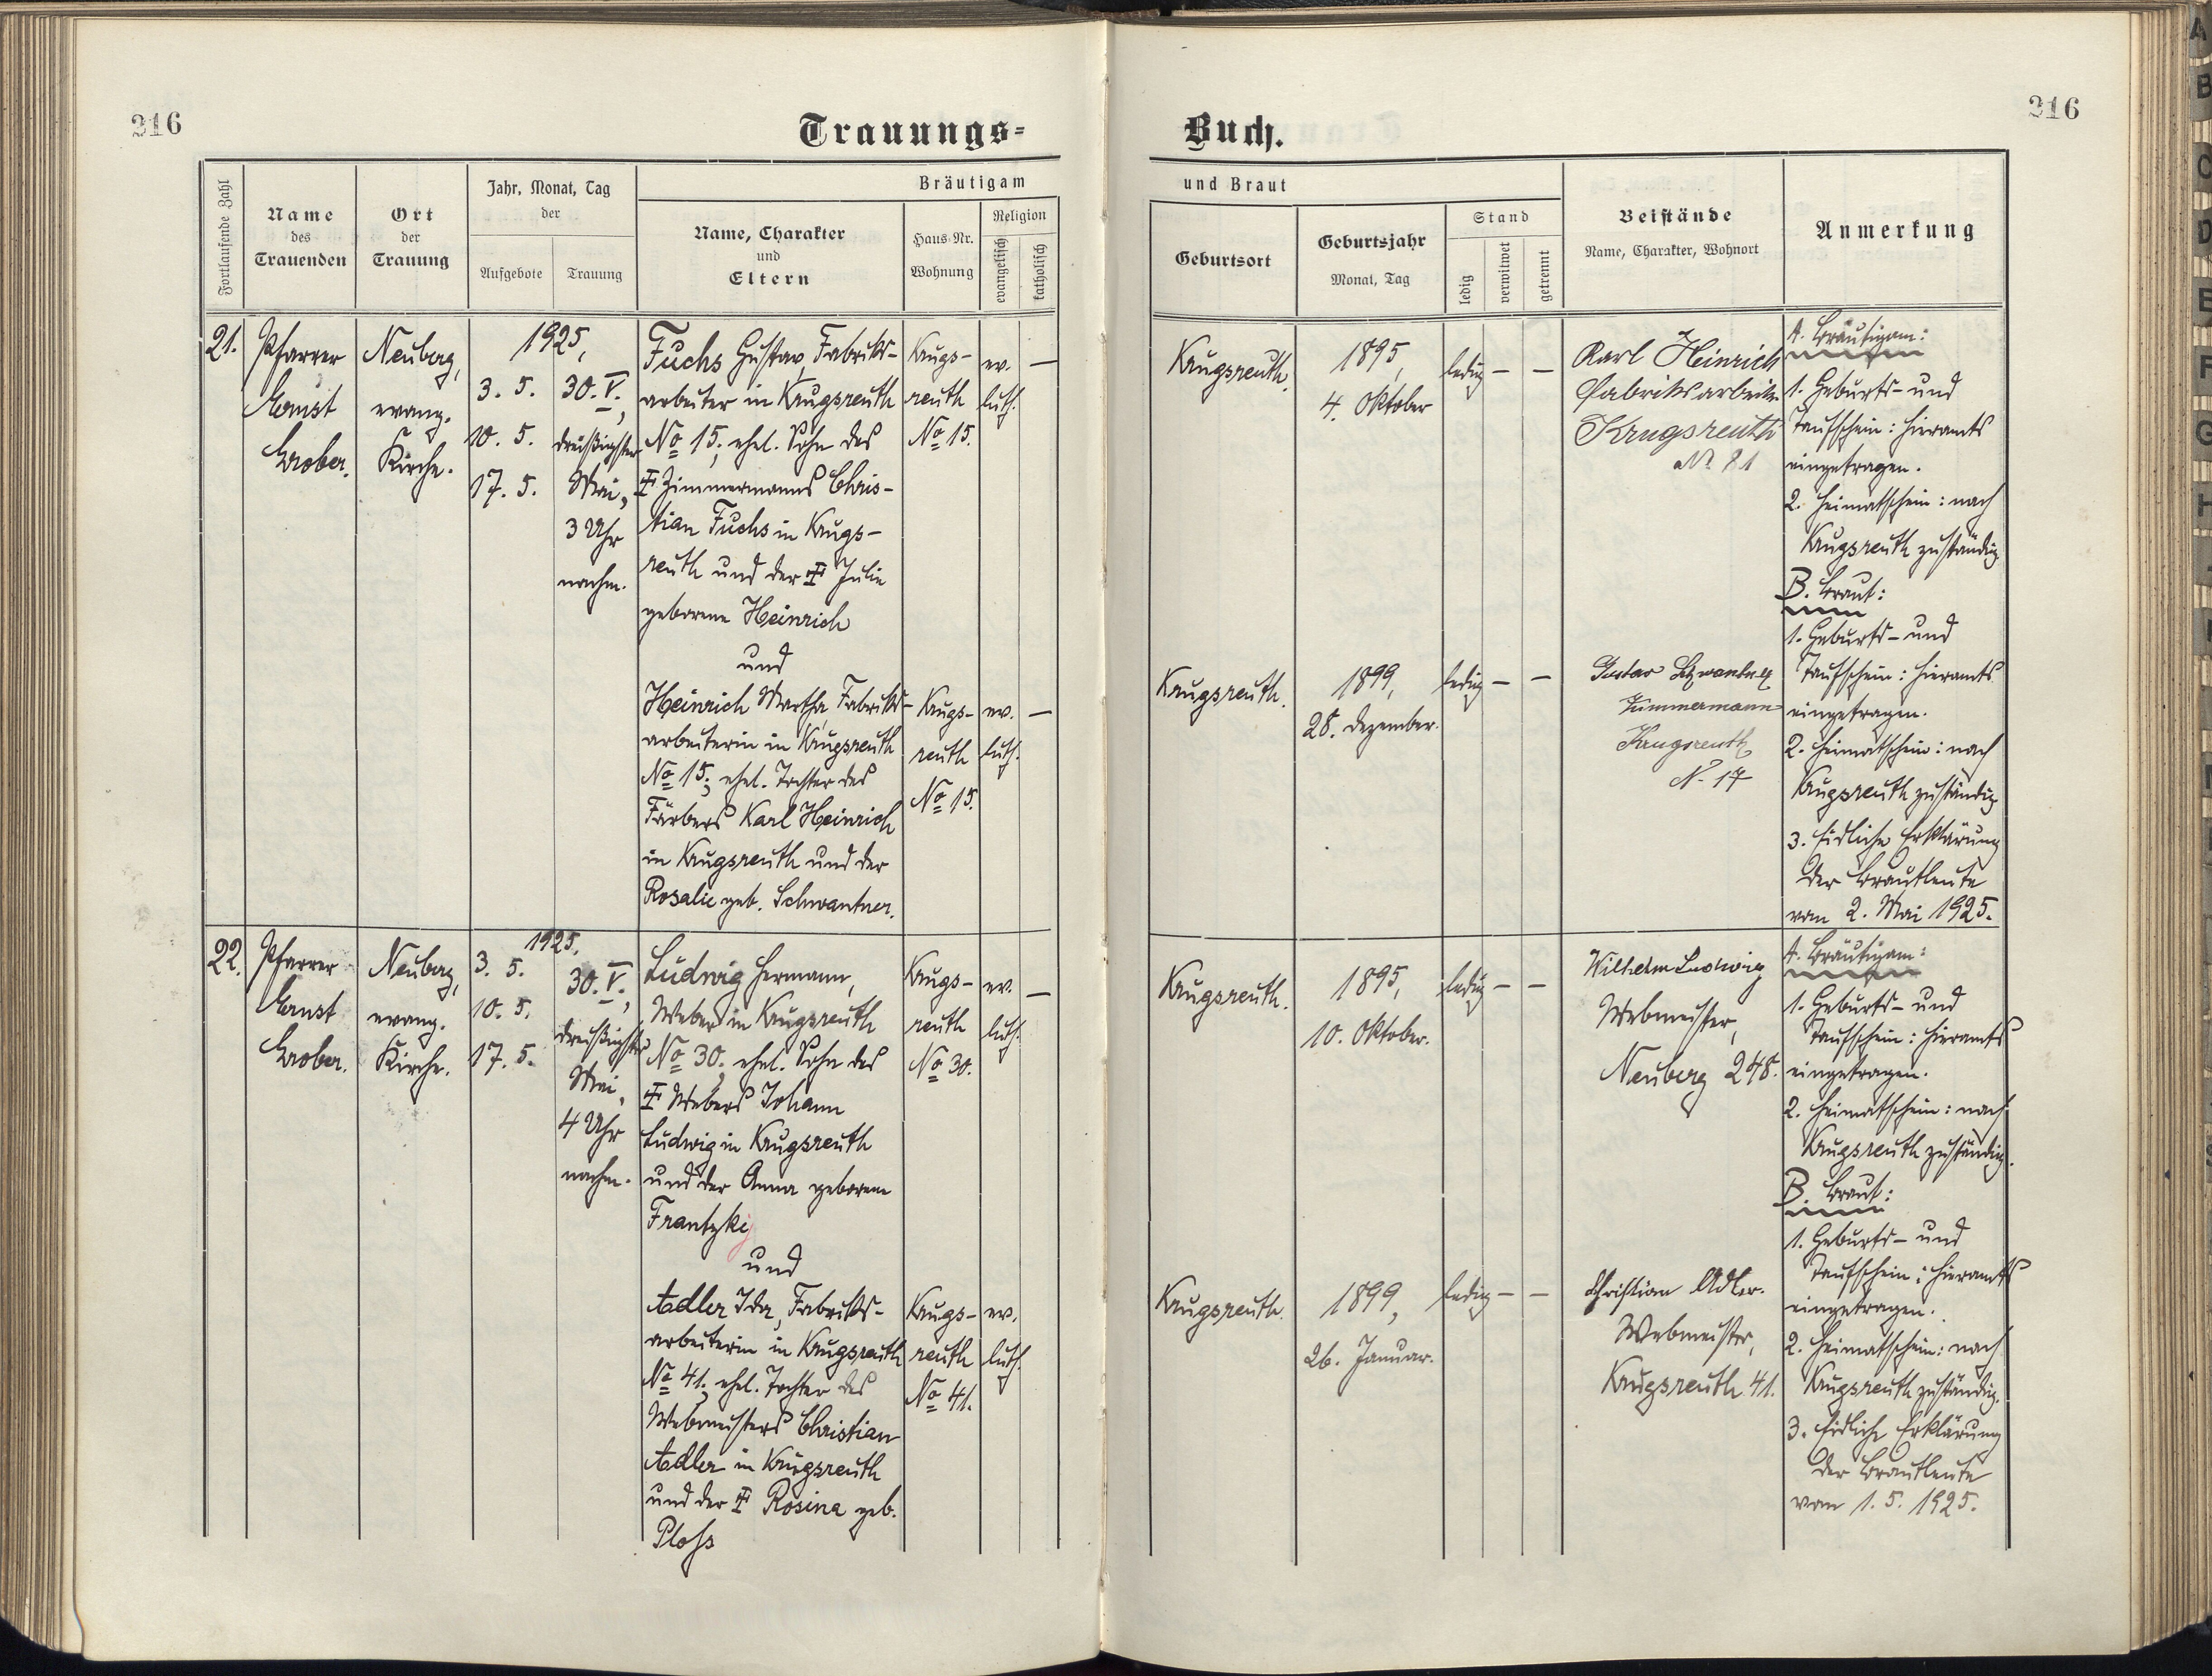 216
Trauungs-
Fortlaufende Zahl
Name
des
Trauenden
Ort
der
Trauung
Jahr, Monat, Tag
der
Aufgebote
Trauung
Bräutigam
Name, Charakter
und
Eltern
Haus-Nr.
Wohnung
Religion
evangelisch
katholisch
21.
Pfarrer
Ernst
Grober.
Neuberg,
evang.
Kirche.
1925,
3. 5.
10. 5.
17. 5.
30. V.,
dreißigster
Mai,
3 Uhr
nachm.
Fuchs Gustav, Fabriks-
arbeiter in Krugsreuth
No 15; ehel. Sohn des
Zimmermanns Chris-
tian Fuchs in Krugs-
reuth und der Julie
geborene Heinrich
und
Heinrich Martha, Fabriks-
arbeiterin in Krugsreuth
No 15; ehel. Tochter des
Färbers Karl Heinrich
in Krugsreuth und der
Rosalie geb. Schwantner.
Krugs-
reuth
No 15.
ev.
luth.
—
Krugs-
reuth
No 15.
ev.
luth.
—
22.
Pfarrer
Ernst
Grober.
Neuberg,
evang.
Kirche.
1925.
3. 5.
10. 5.
17. 5.
30. V.,
dreißigster
Mai,
4 Uhr
nachm.
Ludwig Hermann,
Weber in Krugsreuth
No 30; ehel. Sohn des
Webers Johann
Ludwig in Krugsreuth
und der Anna geborene
Frantzky
und
Adler Ida, Fabriks-
arbeiterin in Krugsreuth
No 41; ehel. Tochter des
Webmeisters Christian
Adler in Krugsreuth
und der Rosina geb.
Ploß
Krugs-
reuth
No 30.
ev.
luth.
—
Krugs-
reuth
No 41.
ev.
luth.
216
Buch.
und Braut
Geburtsort
Geburtsjahr
Monat, Tag
Stand
ledig
verwitwet
getrennt
Beistände
Name, Charakter, Wohnort
Anmerkung
Krugsreuth.
1895,
4. Oktober
ledig — —
Karl Heinrich
Fabriksarbeiter
Krugsreuth
Nr 81
Krugsreuth.
1899,
28. Dezember.
ledig — —
Gustav Schwantner
Zimmermann
Krugsreuth
N. 17
A. Bräutigam:
1. Geburts- und
Taufschein: hieramts
eingetragen.
2. Heimatschein: nach
Krugsreuth zuständig
B. Braut:
1. Geburts- und
Taufschein: hieramts
eingetragen.
2. Heimatschein: nach
Krugsreuth zuständig.
3. Eidliche Erklärung
der Brautleute
vom 2. Mai 1925.
Krugsreuth.
1895,
10. Oktober.
ledig — —
Wilhelm Ludwig
Webmeister,
Neuberg 248.
Krugsreuth.
1899,
26. Januar.
ledig — —
Christian Adler.
Webmeister,
Krugsreuth 41.
A. Bräutigam:
1. Geburts- und
Taufschein: hieramts
eingetragen.
2. Heimatschein: nach
Krugsreuth zuständig.
B. Braut:
1. Geburts- und
Taufschein: hieramts
eingetragen.
2. Heimatschein: nach
Krugsreuth zuständig.
3. Eidliche Erklärung
der Brautleute
vom 1. 5. 1925.
A
B
C
D
E
F
G
H